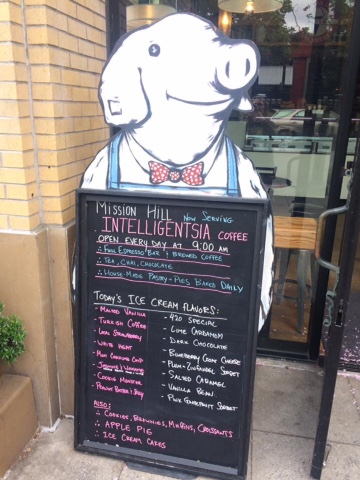 Mission Hill Now Serving
INTELLIGENTSIA COFFEE
OPEN EVERY DAY AT 9:00 AM
Full Espresso Bar & Brewed Coffee
Tea, Chai, Chocolate
House-Made Pastry-Pies Baked Daily
Today's Ice Cream Flavors:
- Malted Vanilla
- Turkish Coffee
- Local Strawberry
- Mint Cookies Chip
- Cookie Monster
- Peanut Butter & Jelly
- 420 Special
- Lime Cardamom
- Dark Chocolate
- Blueberry Goat Cheese
- Plum-Zinfandel Sorbet
- Salted Caramel
- Vanilla Bean
- Pink Grapefruit Sorbet
Also:
Cookies, Brownies, Muffins, Croissants
Apple Pie
Ice Cream Cakes